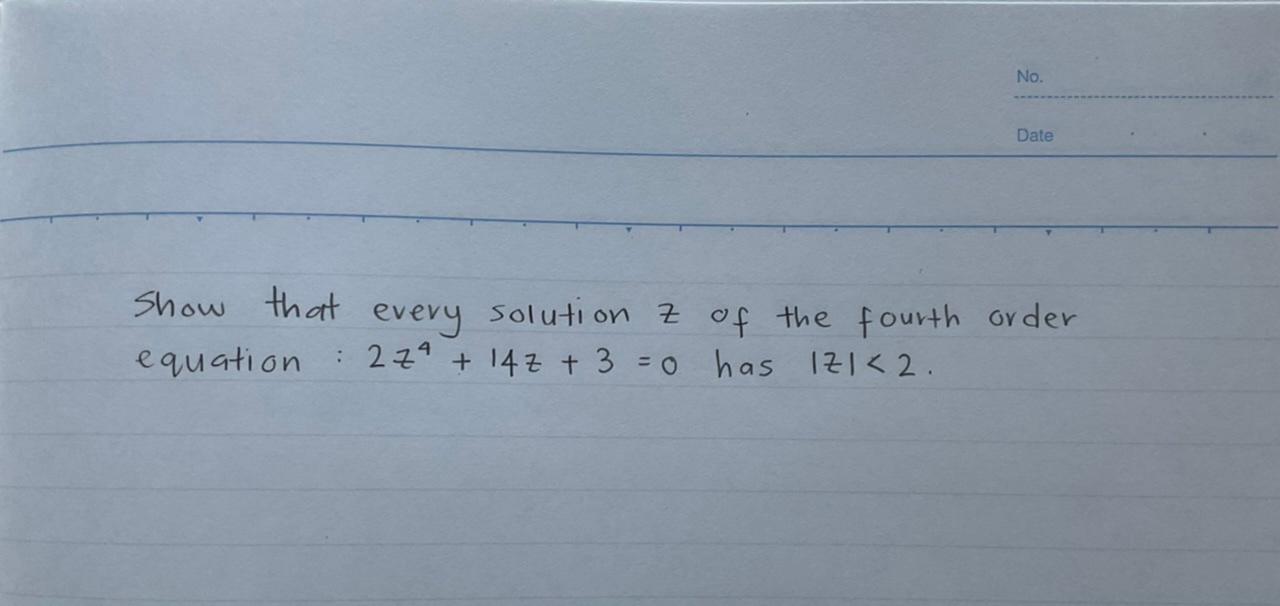 No.
Date
Show that every solution z of the fourth order
equation : 2z⁴ + 14z + 3 = 0 has |z| < 2.